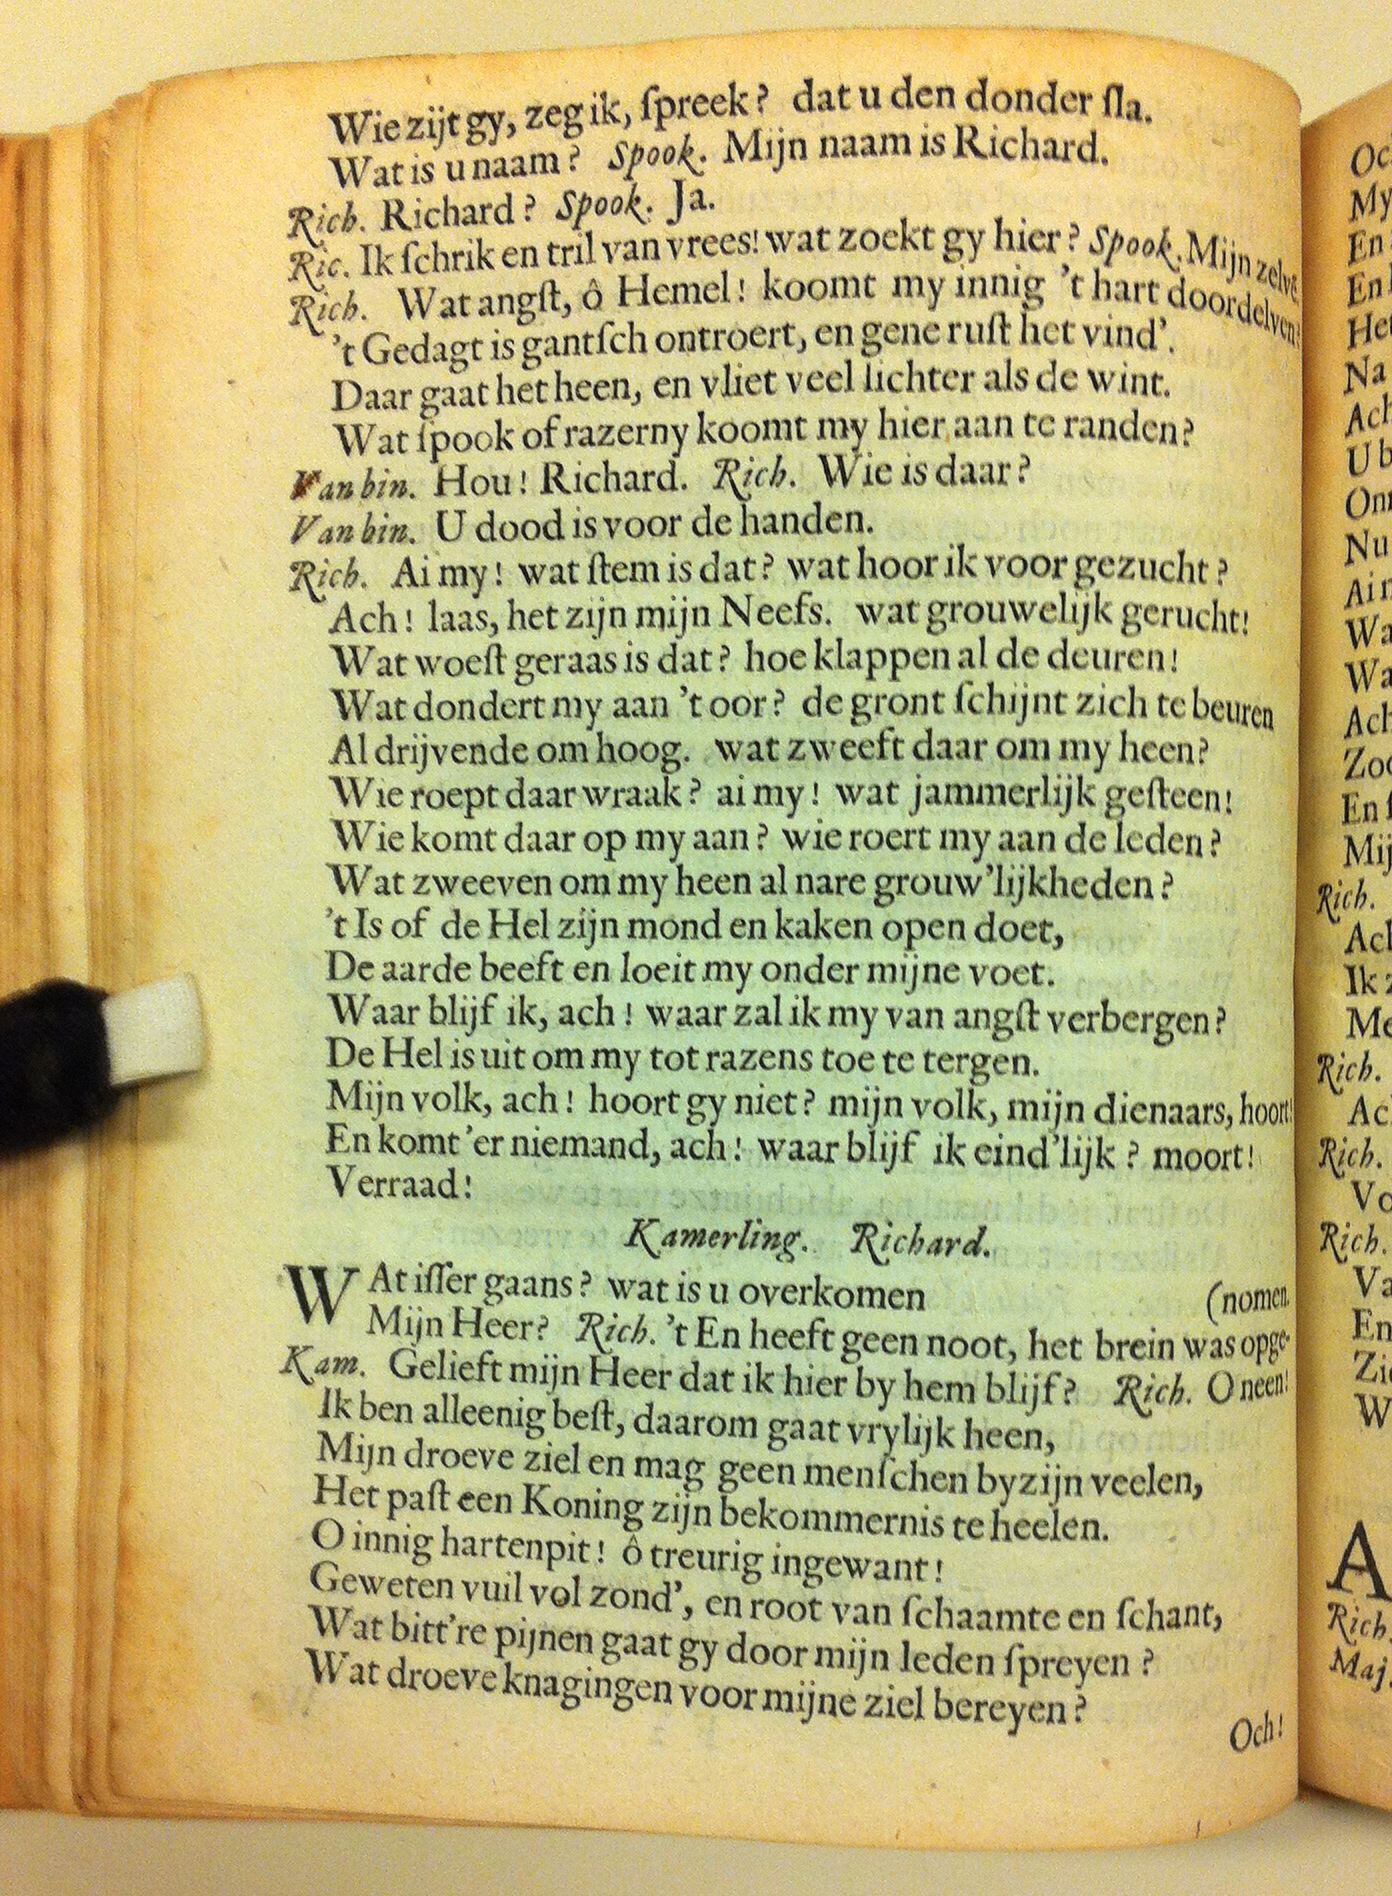 Wie zijt gy, zeg ik, ſpreek? dat u den donder ſla.
Wat is u naam? Spook. Mijn naam is Richard.
Rich. Richard? Spook. Ja.
Ric. Ik ſchrik en tril van vrees! wat zoekt gy hier? Spook. Mijn zelve.
Rich. Wat angſt, ô Hemel! koomt my innig 't hart doordelven?
't Gedagt is gantſch ontroert, en gene ruſt het vind'.
Daar gaat het heen, en vliet veel lichter als de wint.
Wat ſpook of razerny koomt my hier aan te randen?
Van bin. Hou! Richard. Rich. Wie is daar?
Van bin. U dood is voor de handen.
Rich. Ai my! wat ſtem is dat? wat hoor ik voor gezucht?
Ach! laas, het zijn mijn Neefs. wat grouwelijk gerucht!
Wat woeſt geraas is dat? hoe klappen al de deuren!
Wat dondert my aan 't oor? de gront ſchijnt zich te beuren
Al drijvende om hoog. wat zweeft daar om my heen?
Wie roept daar wraak? ai my! wat jammerlijk geſteen!
Wie komt daar op my aan? wie roert my aan de leden?
Wat zweeven om my heen al nare grouw'lijkheden?
't Is of de Hel zijn mond en kaken open doet,
De aarde beeft en loeit my onder mijne voet.
Waar blijf ik, ach! waar zal ik my van angſt verbergen?
De Hel is uit om my tot razens toe te tergen.
Mijn volk, ach! hoort gy niet? mijn volk, mijn dienaars, hoort!
En komt 'er niemand, ach! waar blijf ik eind'lijk? moort!
Verraad!
Kamerling. Richard.
WAt iſſer gaans? wat is u overkomen (nomen.
Mijn Heer? Rich. 't En heeft geen noot, het brein was opge-
Kam. Gelieft mijn Heer dat ik hier by hem blijf? Rich. O neen!
Ik ben alleenig beſt, daarom gaat vrylijk heen,
Mijn droeve ziel en mag geen menſchen byzijn veelen,
Het paſt een Koning zijn bekommernis te heelen.
O innig hartenpit! ô treurig ingewant!
Geweten vuil vol zond', en root van ſchaamte en ſchant,
Wat bitt're pijnen gaat gy door mijn leden ſpreyen?
Wat droeve knagingen voor mijne ziel bereyen?
Och!
Oc
My
En
En
Het
Na
Ach
U b
On
Nu
Ai
Wa
Wa
Ach
Zoo
En
Mij
Rich.
Ach
Ik
Me
Rich.
Ac
Rich.
Vo
Rich.
Va
En
Zi
W
A
Rich.
Maj.